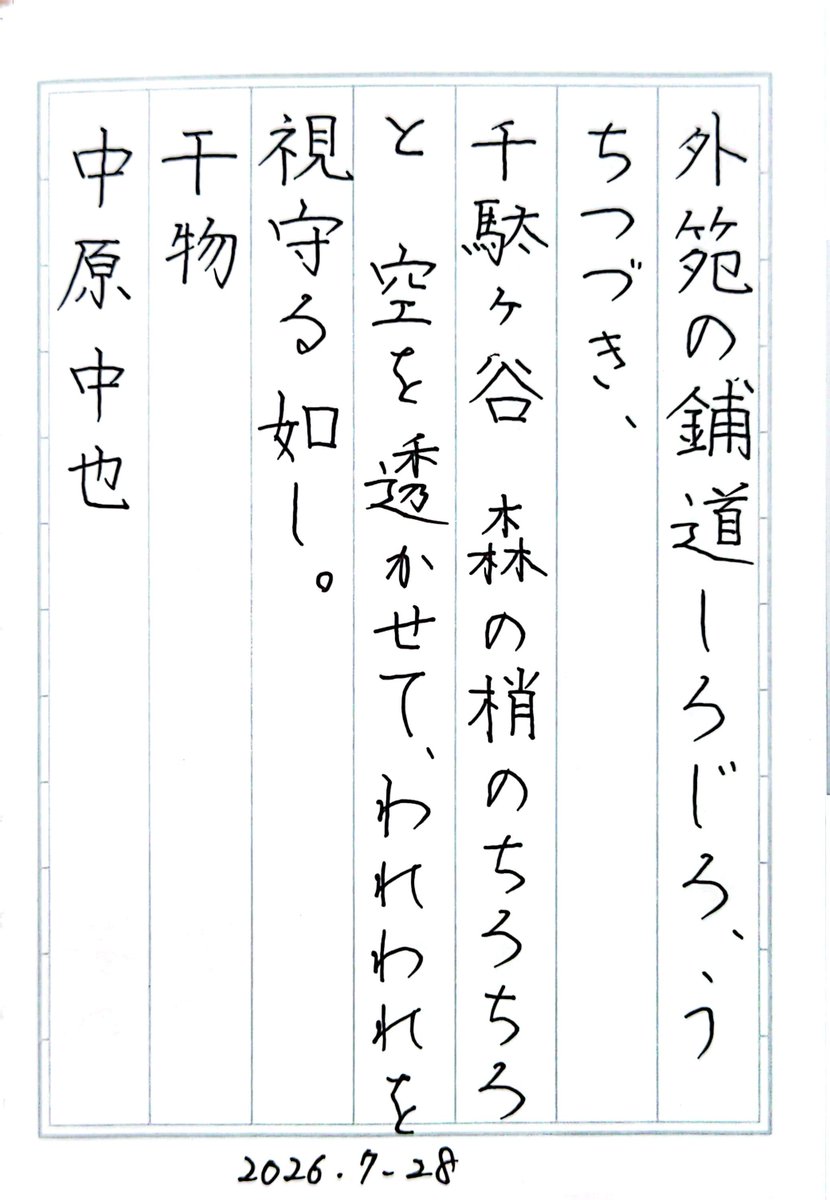 外苑の鋪道しろじろ、う
ちつづき、
千駄ヶ谷　森の梢のちろちろ
と　空を透かせて、われわれを
視守る如し。
干物
中原中也
2026.7-28